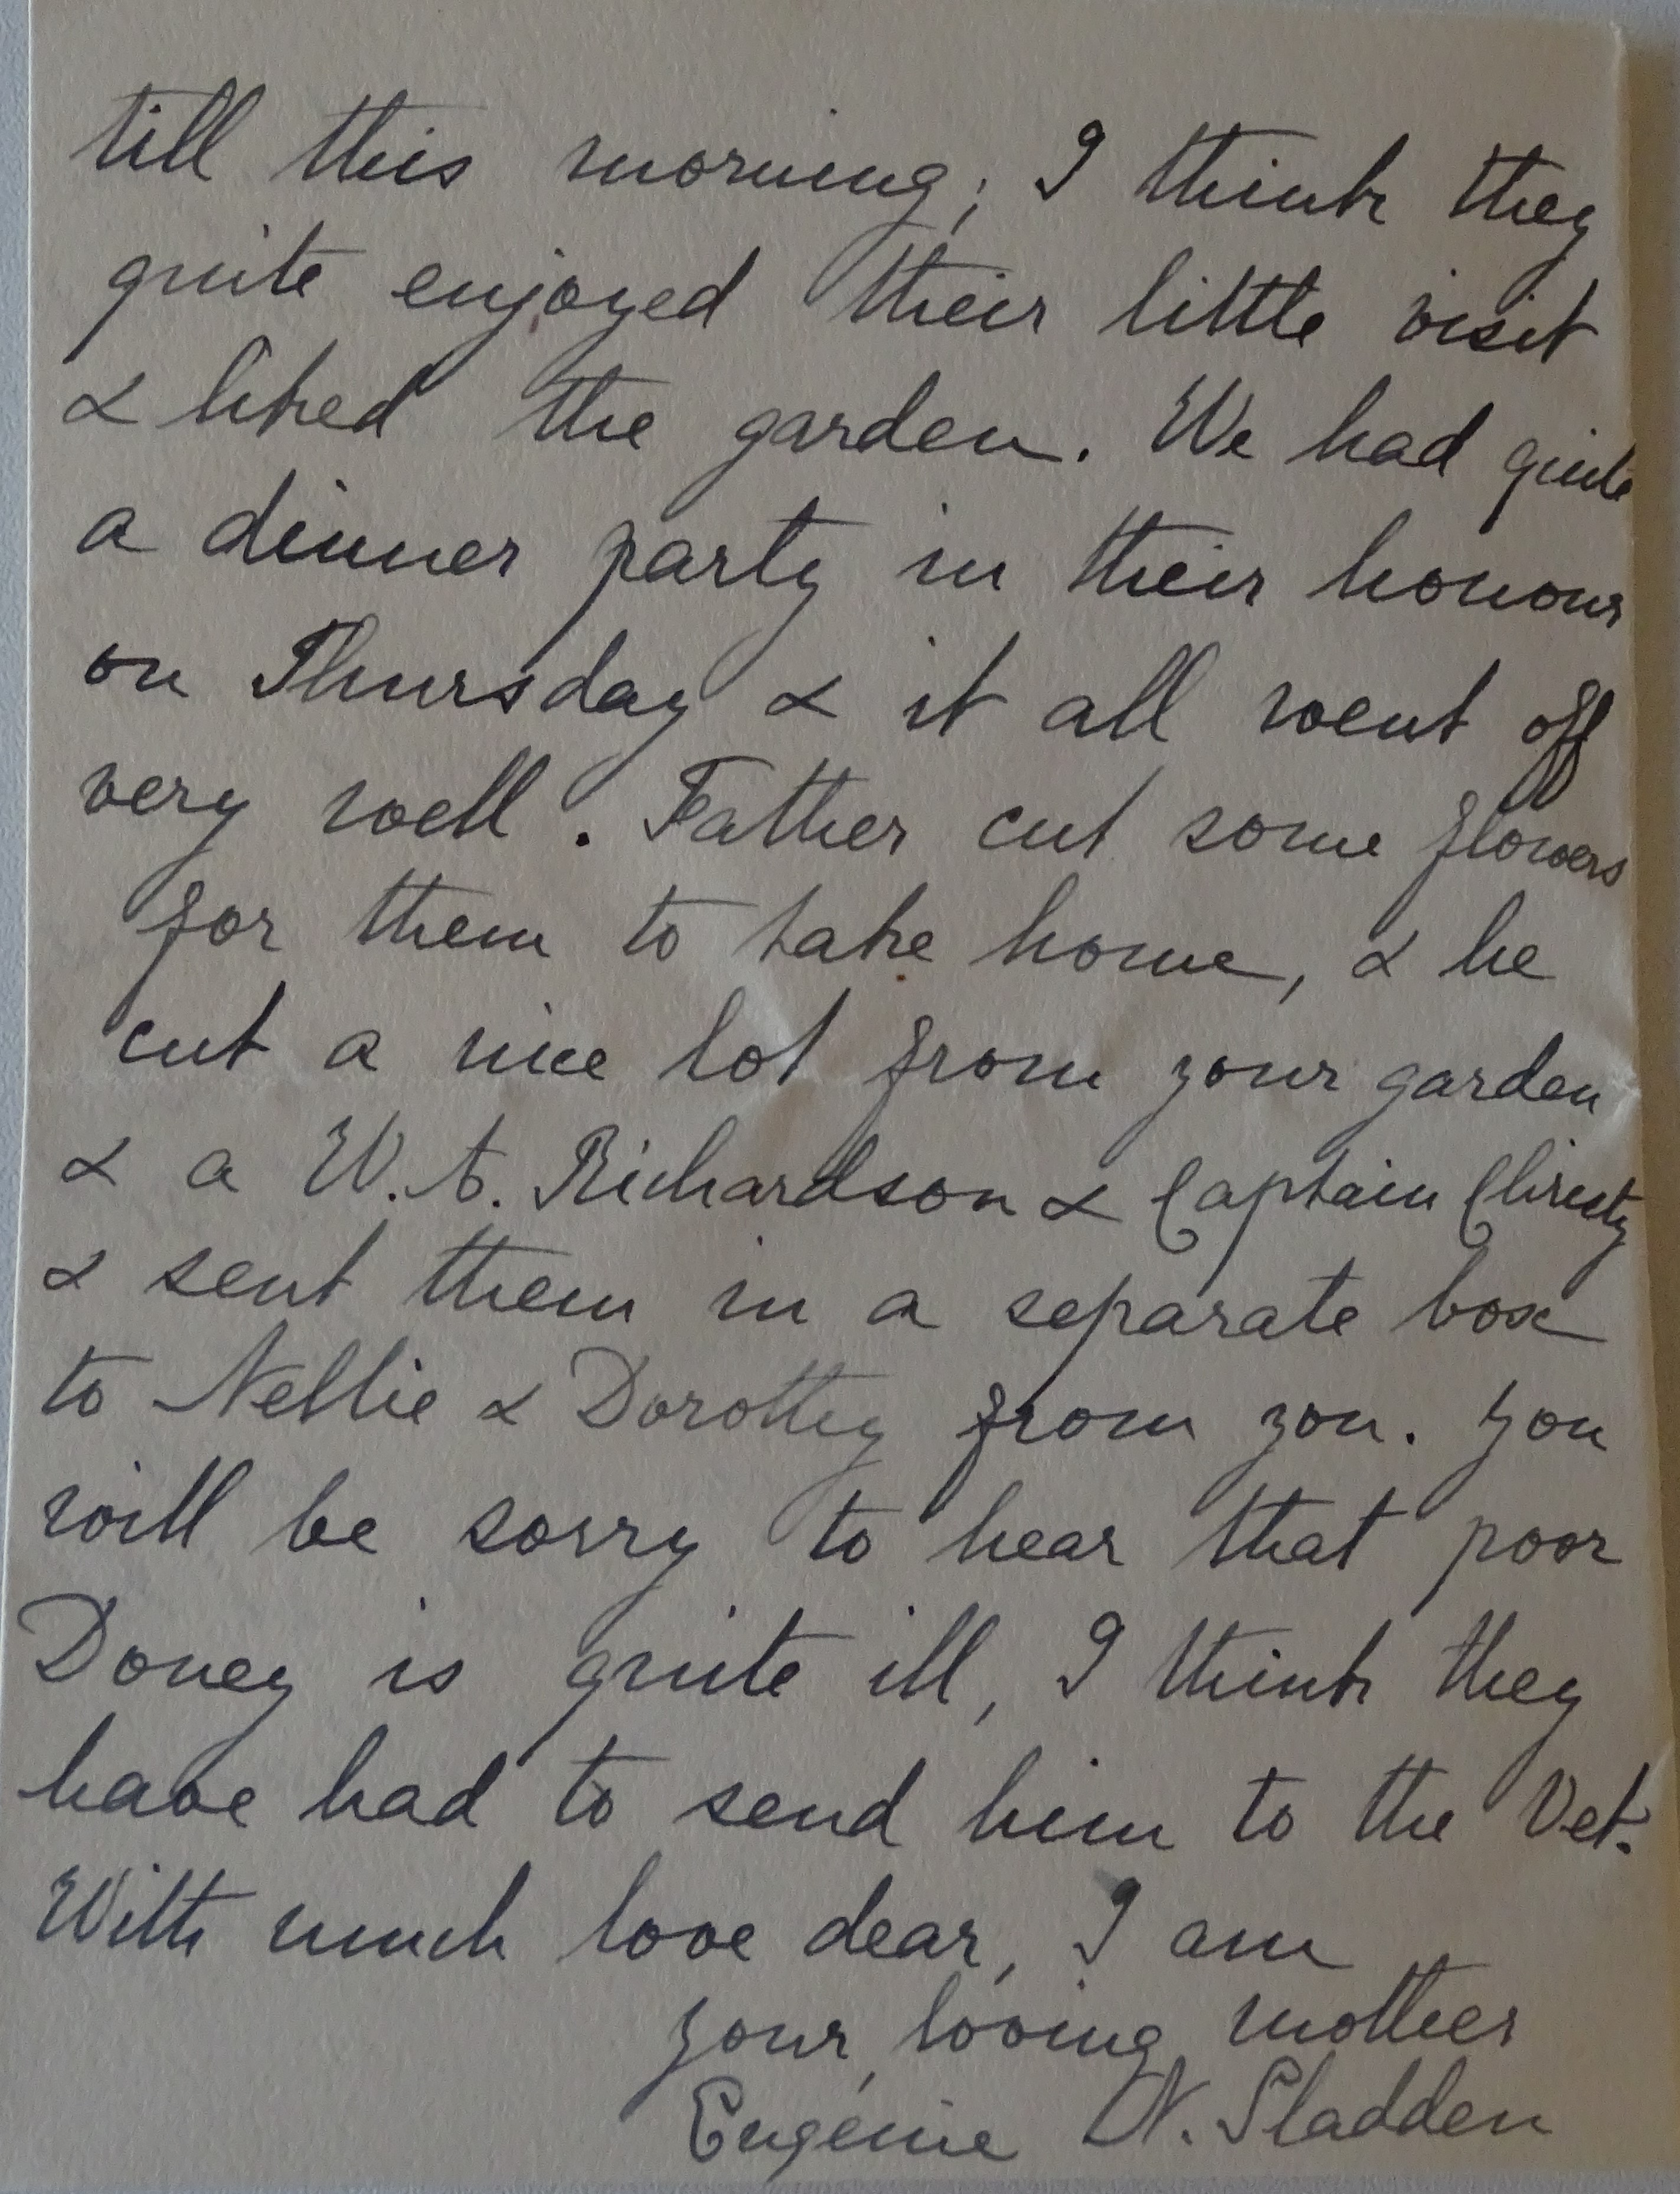 till this morning; I think they
quite enjoyed their little visit
& liked the garden. We had quite
a dinner party in their honour
on Thursday & it all went off
very well. Father cut some flowers
for them to take home, & he
cut a nice lot from your garden
& a W. A. Richardson & Captain Christy
& sent them in a separate box
to Nellie & Dorothy from you. You
will be sorry to hear that poor
Doney is quite ill, I think they
have had to send him to the Vet.
With much love dear, I am
your loving mother
Eugénie N. Sladden